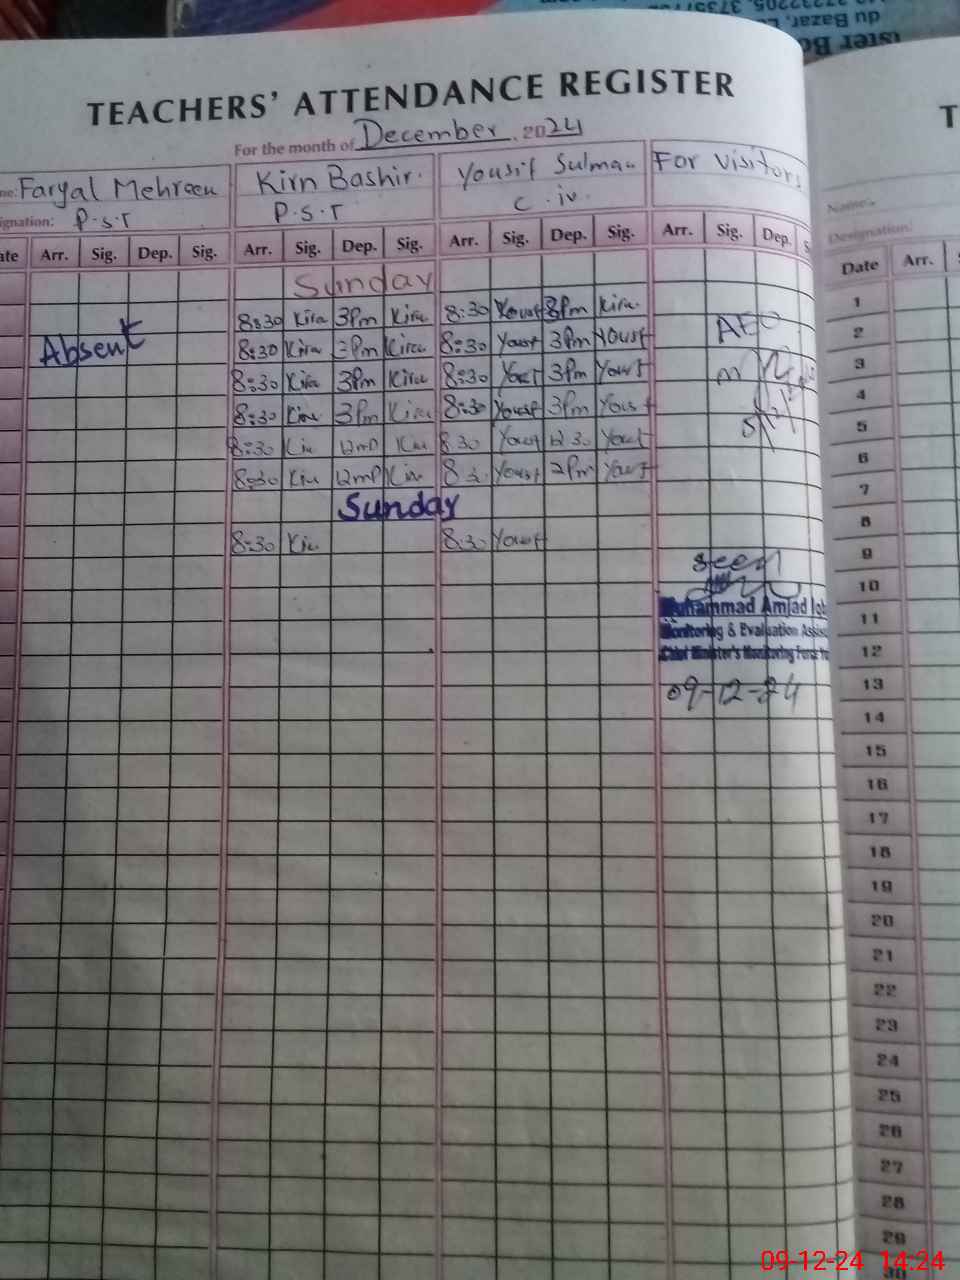 TEACHERS' ATTENDANCE REGISTER
For the month of December 2024
Faryal Mehreen Kirn Bashir. Yousif Sulman For Visitors
ignation: P.S.T P.S.T C.iv.
ate Arr. Sig. Dep. Sig. Arr. Sig. Dep. Sig. Arr. Sig. Dep. Sig. Arr. Sig. Dep.
Sunday
8:30 Kirn 3Pm Kirn 8:30 Yousf 3Pm Kirn
Absent 8:30 Kirn 3Pm Kirn 8:30 Yousf 3Pm Yousf AEO
8:30 Kirn 3Pm Kirn 8:30 Yousf 3Pm Yousf
8:30 Kirn 3Pm Kirn 8:30 Yousf 3Pm Yousf
8:30 12 8:30 Yousf 12:30 Yousf
8:30 12 8:3 Yousf 2Pm Yousf
Sunday
8:30 8:30 Yousf
seen
Muhammad Amjad Iqb
Monitoring & Evaluation Assis
Chief Minister's Monitoring Force
09-12-24
T
Name:
Designation:
Date Arr.
1
2
3
4
5
6
7
8
9
10
11
12
13
14
15
16
17
18
19
20
21
22
23
24
25
26
27
28
29
30
09-12-24 14:24